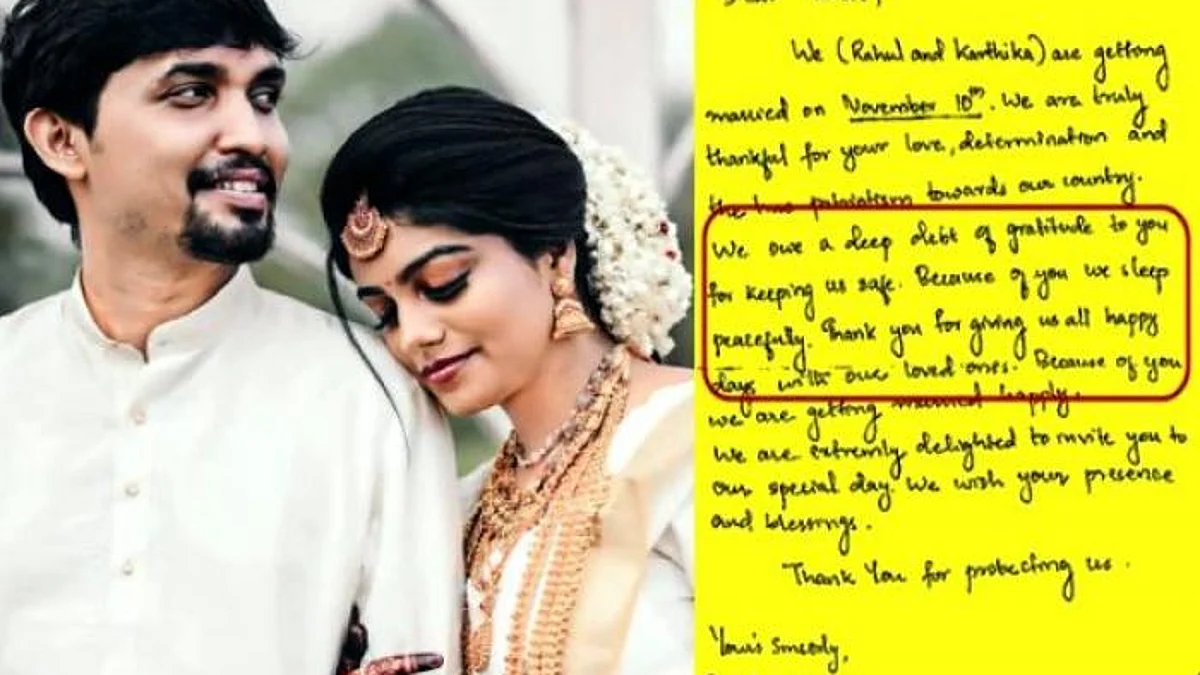 We (Rahul and Karthika) are getting
married on November 10th. We are truly
thankful for your love, determination and
patriotism towards our country.
We owe a deep debt of gratitude to you
for keeping us safe. Because of you we sleep
peacefully. Thank you for giving us all happy
days with our loved ones. Because of you
we are getting married happly.
We are extremly delighted to invite you to
our special day. We wish your presence
and blessings.
Thank You for protecting us.